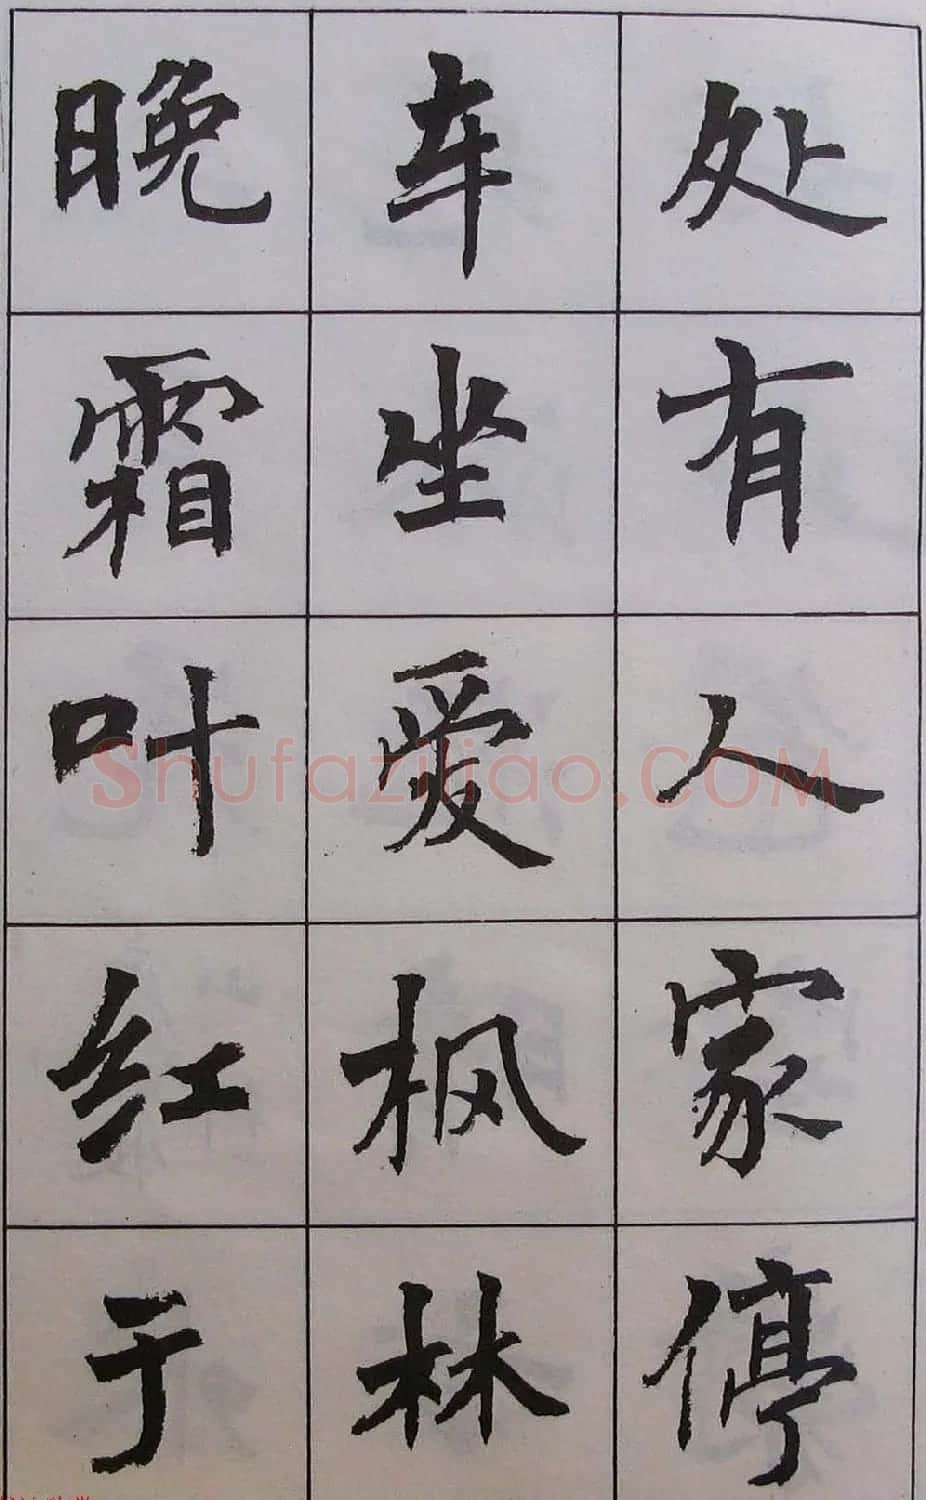 处有人家停
车坐爱枫林
晚霜叶红于
Shufaziliao.COM